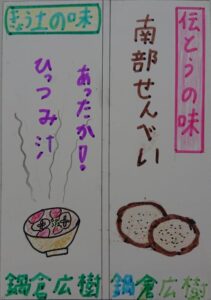 伝とうの味
南部せんべい
鍋倉広樹
きょう土の味
あったか!!
ひっつみ汁
鍋倉広樹